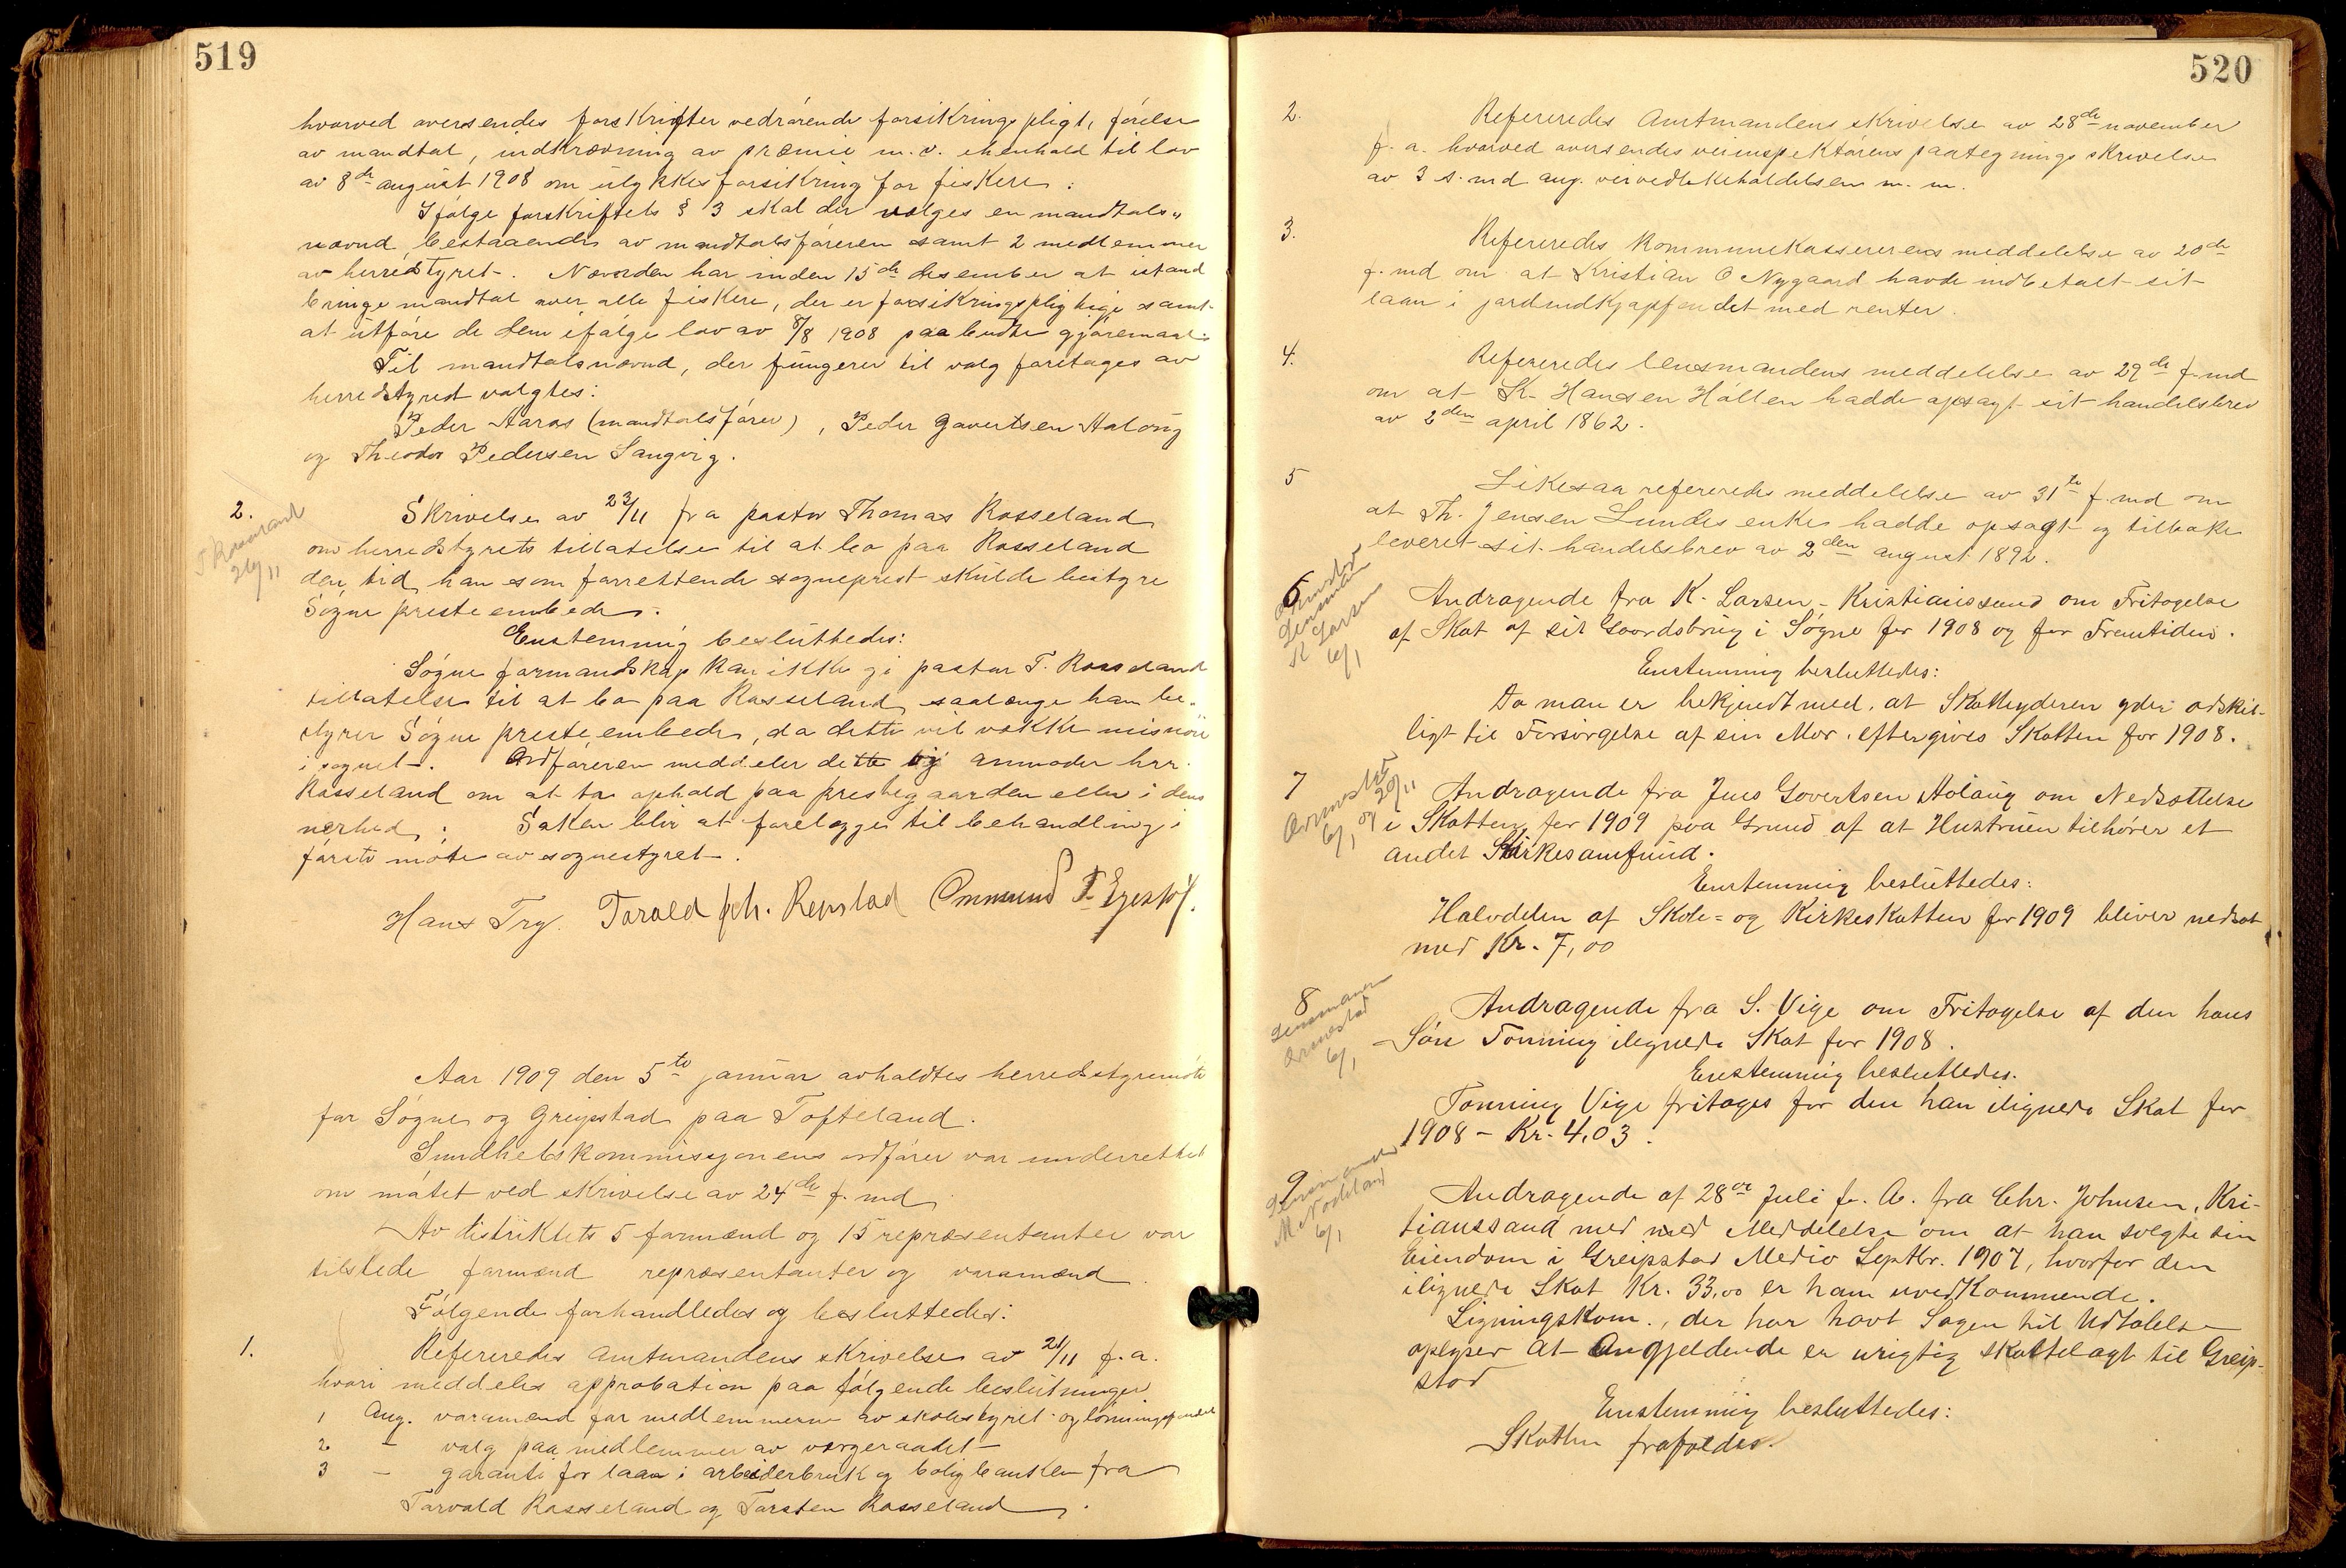 519
hvorved oversendes forskrifter vedrørende forsikringspligt, førelse
av mandtal, indkrævning av præmie m. v. i henhold til lov
av 8de august 1908 om ulykkesforsikring for fiskere:
Ifølge forskriftets § 3 skal der vælges en mandtals-
nævnd bestaaende av mandtalsføreren samt 2 medlemmer
av herredstyret. Nævnden har inden 15de desember at istand
bringe mandtal over alle fiskere, der er forsikringspligtige samt
at utføre de dem ifølge lov av 8/8 1908 paabudte gjøremaal:
Til mandtalsnævnd, der fungerer til valg foretages av
herredstyret valgtes:
Peder Aaros (mandtalsfører), Peder Govertsen Aaløug
og Theodor Pedersen Langvig.
2.
T Rosseland
26/11
Skrivelse av 23/11 fra pastor Thomas Rosseland
om herredstyrets tillatelse til at bo paa Rosseland
den tid han som forrettende sogneprest skulde bestyre
Søgne presteembede.
Enstemmig besluttedes:
Søgne formandskap kan ikke gi pastor T. Rosseland
tillatelse til at bo paa Rosseland saalænge han be-
styrer Søgne presteembede, da dette vil vække misnøie
i sognet. Ordføreren meddeler dette og anmoder hrr.
Rosseland om at ta ophold paa prestegaarden eller i dens
nærhed. Saken blir at forelægges til behandling i
første møte av sognestyret.
Hans Try. Torald Joh. Repstad Ommund T. Egestøl.
Aar 1909 den 5te januar avholdtes herredstyremøte
for Søgne og Greipstad paa Tofteland.
Sundhetskommisjonens ordfører var underrettet
om møtet ved skrivelse av 24de f. md
Av distriktets 5 formænd og 15 repræsentanter var
tilstede formænd repræsentanter og varamænd.
Følgende forhandledes og besluttedes:
1.
Refereredes amtmandens skrivelse av 21/11 f. a.
hvori meddeles approbation paa følgende beslutninger
1 Ang. varamænd for medlemmerne av skolestyret og lønningsfondet
2 - valg paa medlemmer av vergeraadet
3 - garanti for laan i arbeiderbruk og boligbanken fra
Torvald Rosseland og Torsten Rosseland.
520
2.
Refereredes Amtmandens skrivelse av 28de november
f. a. hvorved oversendes veiinspektørens paategningsskrivelse
av 3 s. md ang. veivedlikeholdelsen m. m.
3.
Refereredes kommunekassererens meddelelse av 20de
f. md om at Kristian O Nygaard havde indbetalt sit
laan i jordindkjøpfondet med renter.
4.
Refereredes lensmandens meddelelse av 29de f. md
om at K. Hansen Høllen hadde opsagt sit handelsbrev
av 2den april 1862.
5
Likesaa refereredes meddelelse av 31te f. md om
at Th. Jensen Lundes enke hadde opsagt og tilbake
leveret sit handelsbrev av 2den august 1892.
6
Lensman
K Larsen
6/1
Andragende fra K. Larsen - Kristianssund om Fritagelse
af Skat af sit Gaardsbrug i Søgne for 1908 og for Fremtiden.
Enstemmig besluttedes:
Da man er bekjendt med, at Skatteyderen yder adskil-
ligt til Forsørgelse af sin Mor, eftergives Skatten for 1908.
7
Ormestad
6/1 og 20/11
Andragende fra Jens Govertsen Aaløug om Nedsættelse
i Skatten for 1909 paa Grund af at Hustruen tilhører et
andet Kirkesamfund.
Enstemmig besluttedes:
Halvdelen af Skole= og Kirkeskatten for 1909 bliver nedsat
med Kr. 7,00
8
Lensmanen
Ormestad
6/1
Andragende fra S. Vige om Fritagelse af den hans
Søn Tønning ilignede Skat for 1908.
Enstemmig besluttedes.
Tønning Vige fritages for den han ilignede Skat for
1908 - Kr. 4,03.
9
Lensmanden
M Nodeland
6/1
Andragende af 28de Juli f. A. fra Chr. Johnsen, Kri-
tianssand med med Meddelelse om at han solgte sin
Eiendom i Greipstad Medio Septbr. 1907, hvorfor den
ilignede Skat Kr. 33,00 er ham uvedkommende.
Ligningskom., der har havt Sagen til Udtalelse
oplyser at Angjeldende er urigtig skattelagt til Greip-
stad
Enstemmig besluttedes:
Skatten frafaldes.